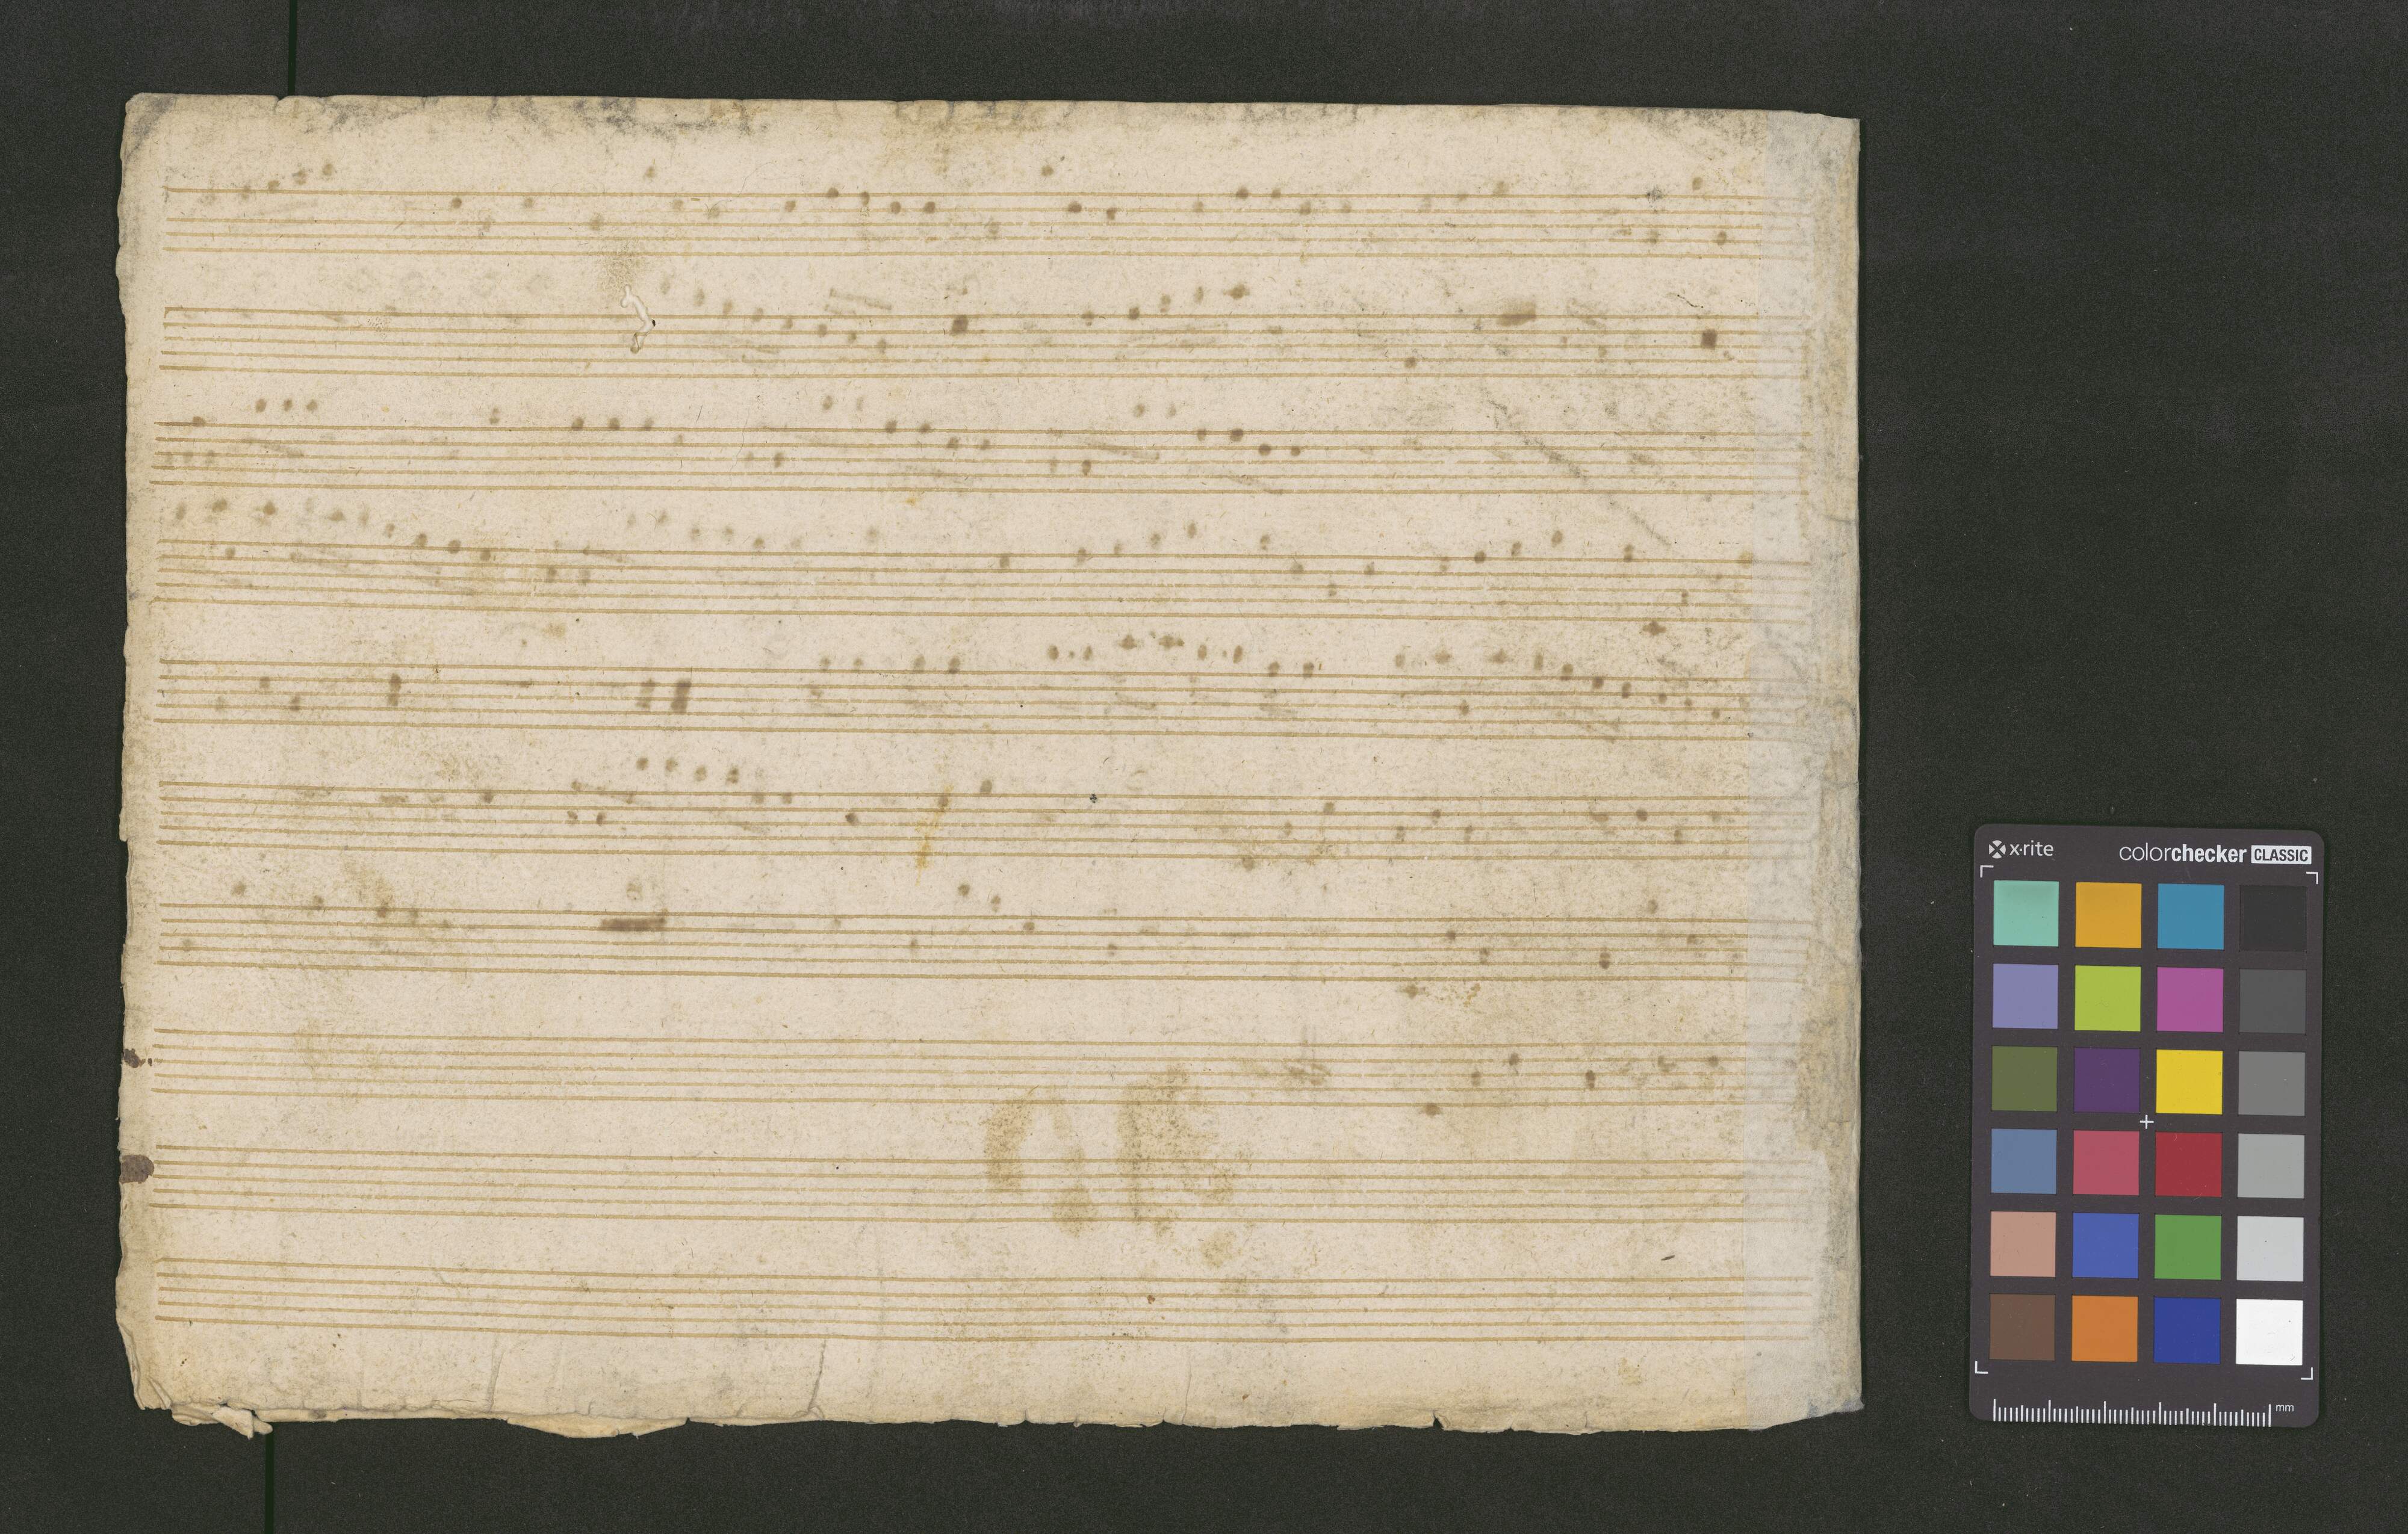 x·rite
colorchecker CLASSIC
mm